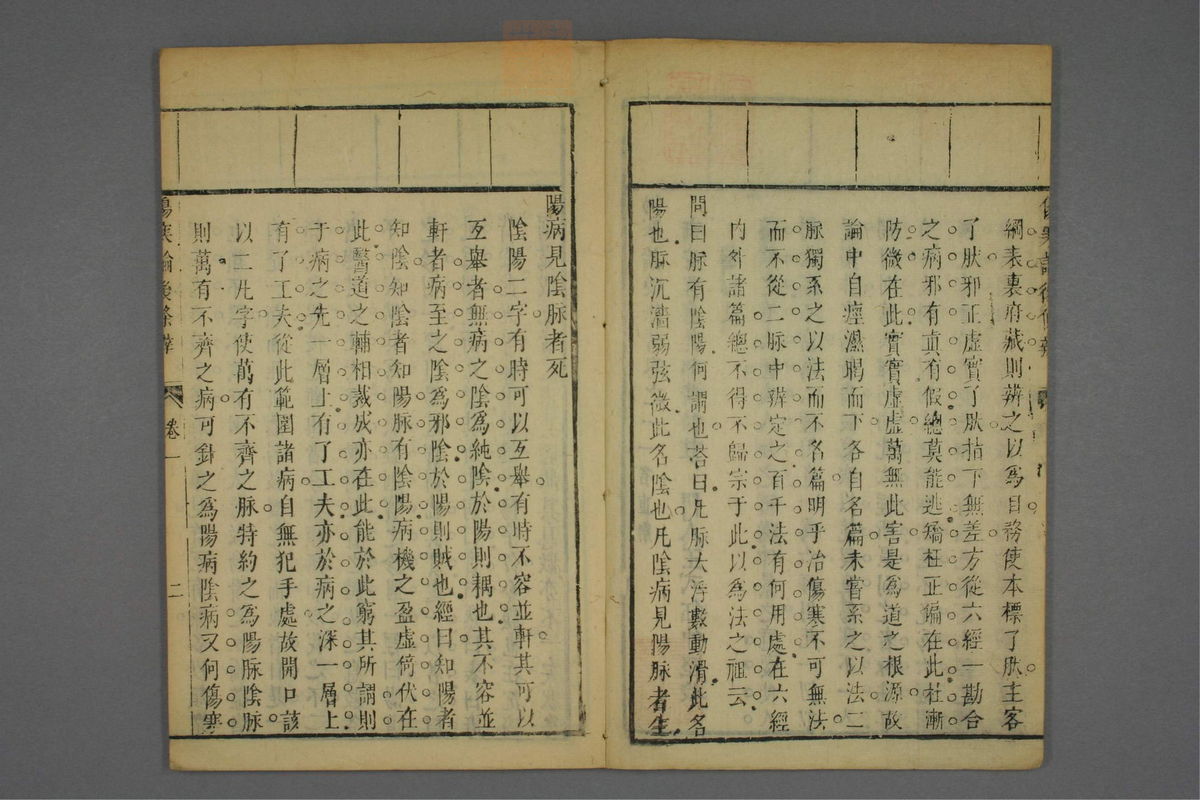 綱表裏府藏則辨之以爲目務使本標了肰主客
了肰邪正虛實了肰指下無差方從六經一勘合
之病邪有眞有假總莫能逃矯枉正偏在此杜漸
防微在此實實虛虛萬無此害是爲道之根源故
論中自痙濕暍而下各自名篇未嘗系之以法二
脉獨系之以法而不名篇明乎治傷寒不可無法
而不從二脉中辨定之百千法有何用處在六經
内外諸篇總不得不歸宗于此以爲法之祖云
問曰脉有陰陽何謂也荅曰凡脉大浮數動滑此名
陽也脉沉濇弱弦微此名陰也凡陰病見陽脉者生
陽病見陰脉者死
陰陽二字有時可以互舉有時不容並軒其可以
互舉者無病之陰爲純陰於陽則耦也其不容並
軒者病至之陰爲邪陰於陽則賊也經曰知陽者
知陰知陰者知陽脉有陰陽病機之盈虛倚伏在
此醫道之輔相裁成亦在此能於此窮其所謂則
于病之先一層上有了工夫亦於病之深一層上
有了工夫從此範圍諸病自無犯手處故開口該
以二凡字使萬有不齊之脉特約之爲陽脉陰脉
則萬有不齊之病可針之爲陽病陰病又何傷寒
傷寒論後條辨
卷一
二